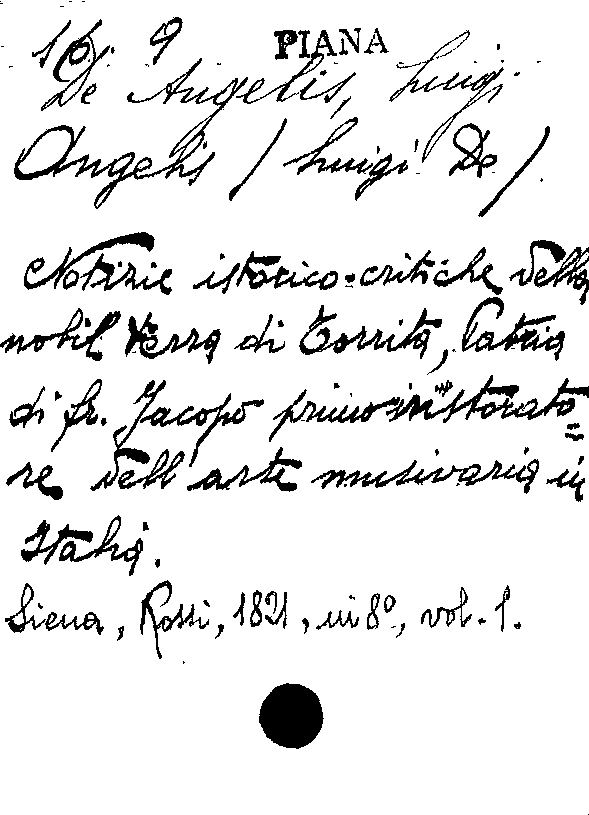 16. 9 PIANA
De Angelis, Luigi
Angelis / Luigi De /.
Notizie istorico-critiche della
nobil terra di Torrita, Patria
di fr. Jacopo primo ristorato=
re dell'arte musivaria in
Italia.
Siena, Rossi, 1821, in 8º, vol. 1.